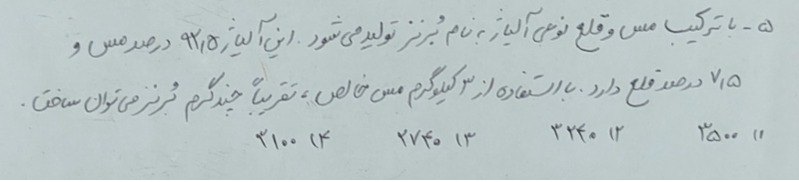 ۵ - با ترکیب مس و قلع نوعی آلیاژ به نام بُرنز تولید می‌شود. این آلیاژ ۹۲٫۵ درصد مس و
۷٫۵ درصد قلع دارد. با استفاده از ۳ کیلوگرم مس خالص، تقریباً چند گرم بُرنز می‌توان ساخت.
۱) ۳۵۰۰ ۲) ۳۲۴۰ ۳) ۲۷۴۰ ۴) ۳۱۰۰